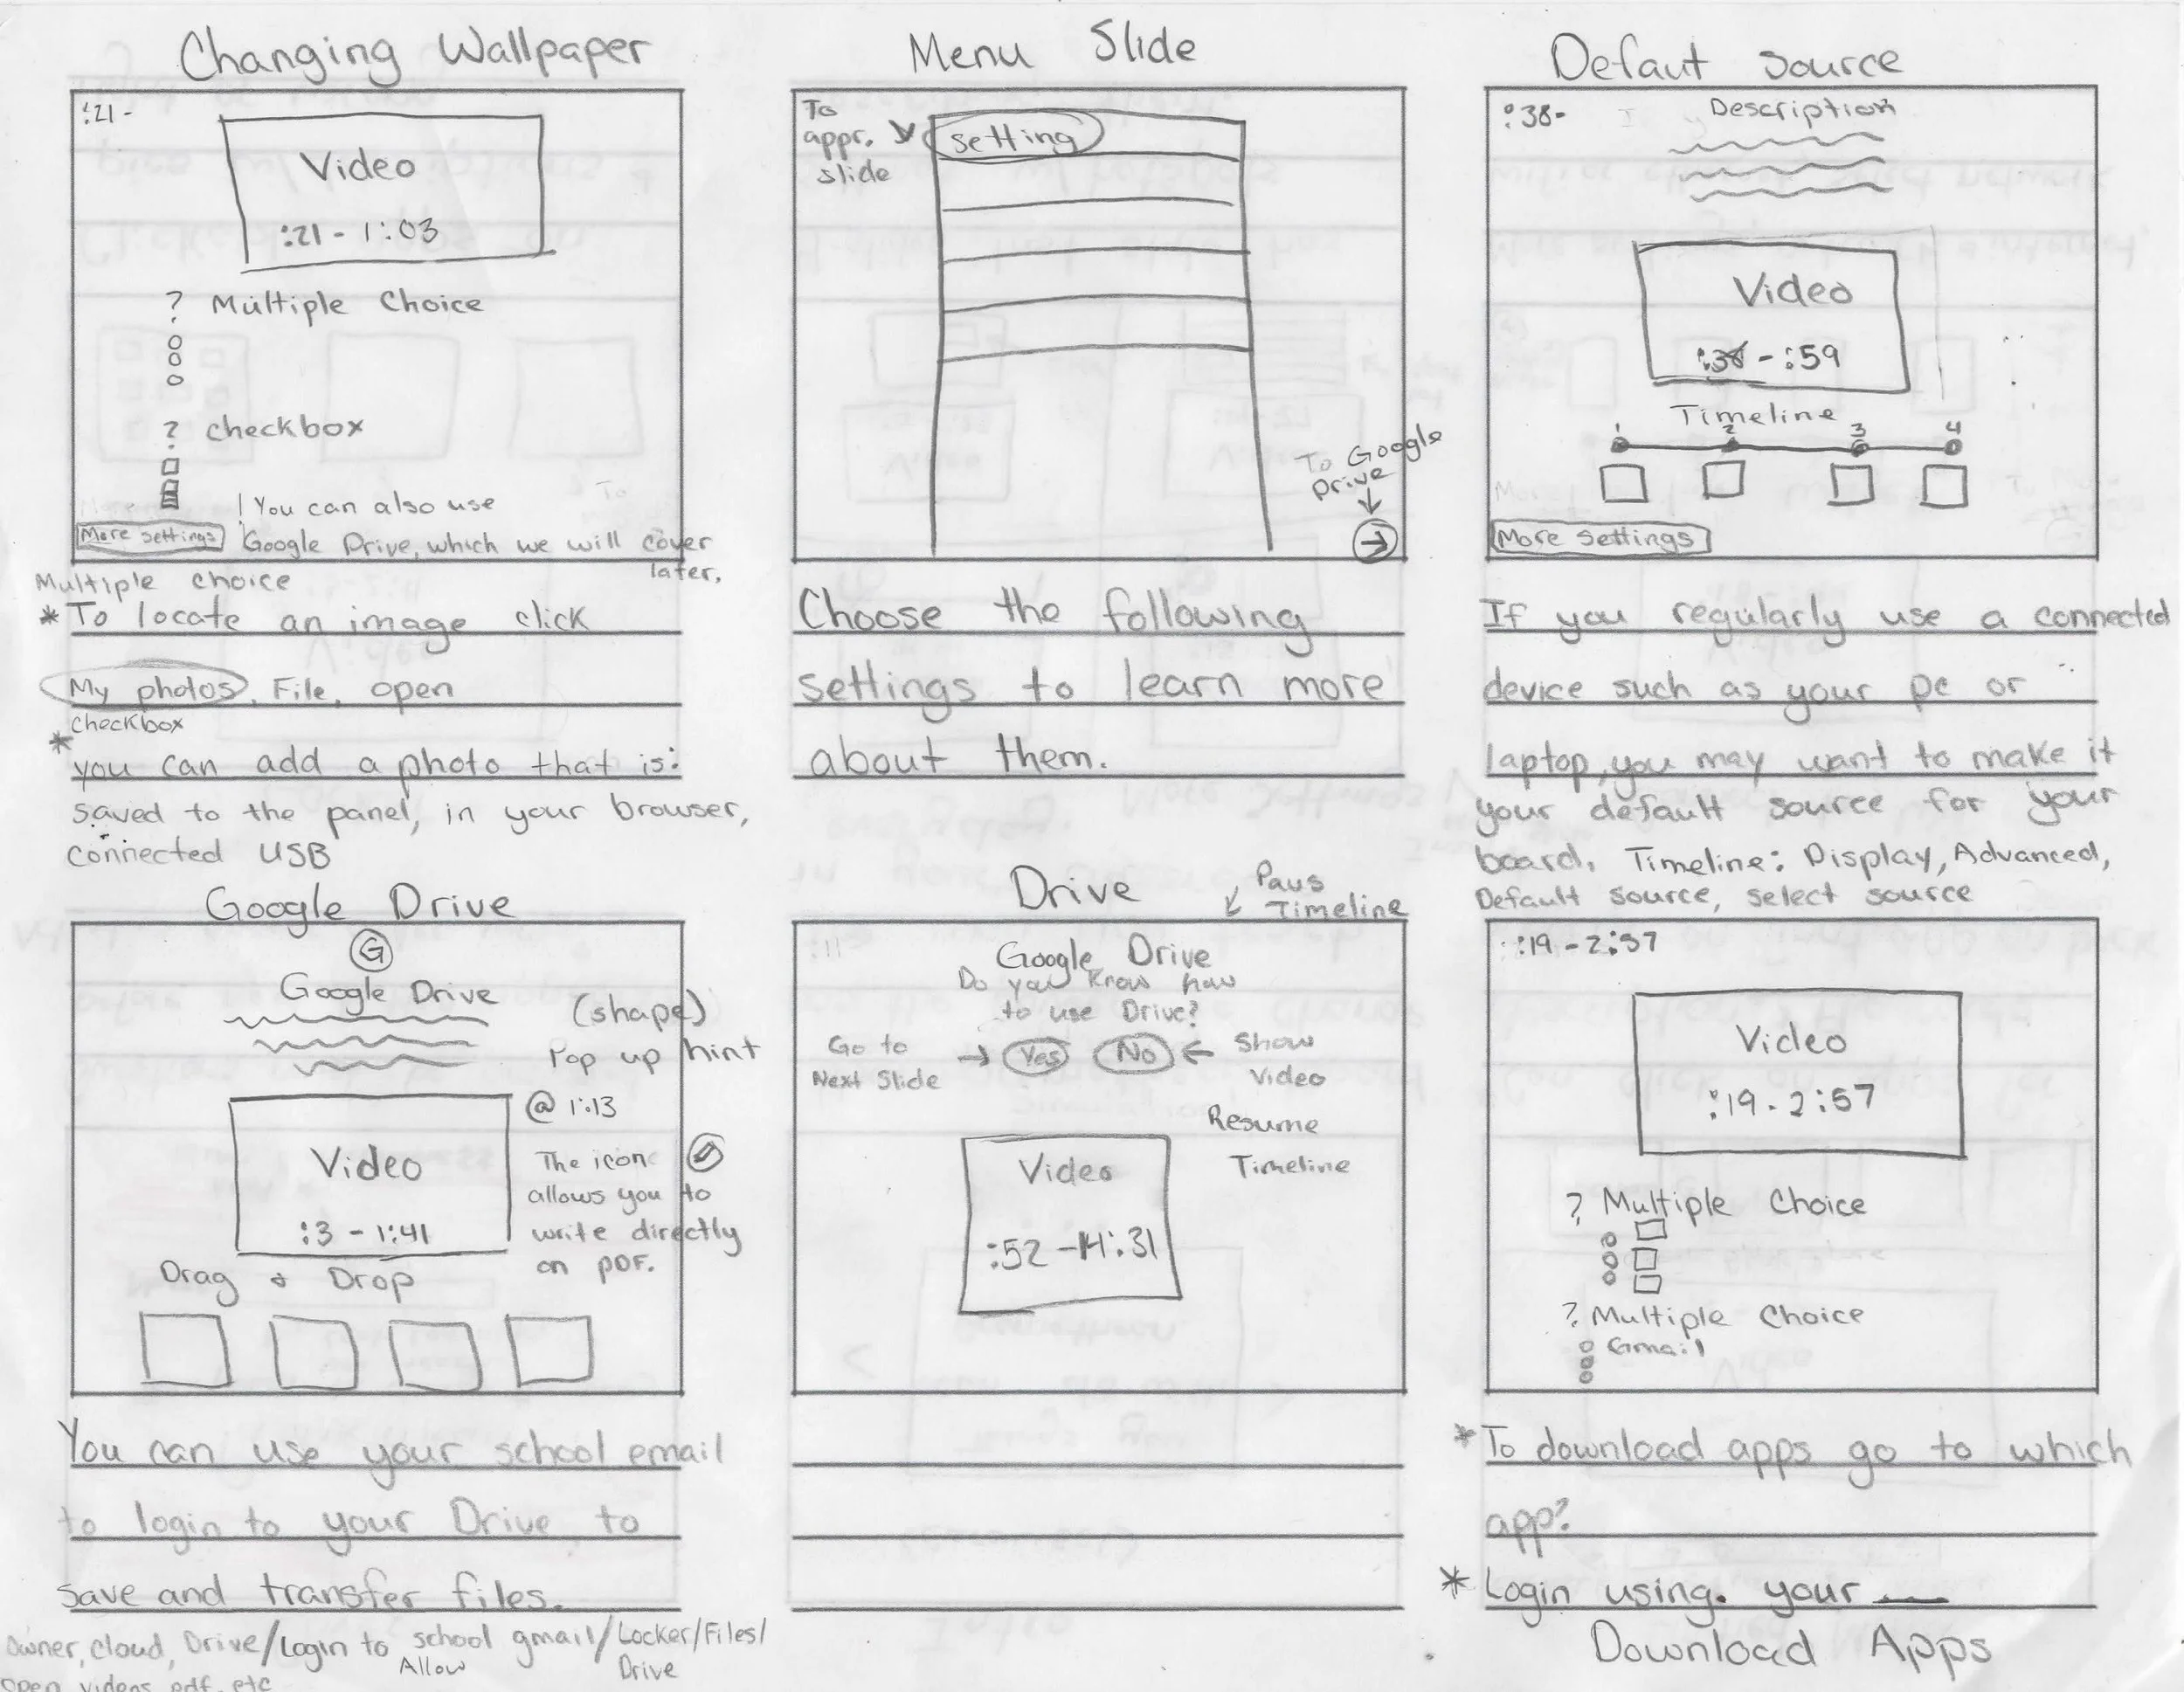 Changing Wallpaper
:21-
Video
:21 - 1:03
? Multiple Choice
? checkbox
! You can also use
More settings
Google Drive, which we will cover
later.
Multiple choice
* To locate an image click
My photos, File, open
checkbox
* you can add a photo that is:
saved to the panel, in your browser,
connected USB
Menu Slide
To
appr.
slide
setting
To Google
Drive
Choose the following
settings to learn more
about them.
Defaut Source
:38-
Description
Video
:38 - :59
Timeline
1 2 3 4
More Settings
If you regularly use a connected
device such as your pc or
laptop, you may want to make it
your default source for your
board. Timeline: Display, Advanced,
Default source, select source
Google Drive
G
Google Drive
(shape)
Pop up hint
@ 1:13
Video
:3 - 1:41
The icon
allows you to
write directly
on PDF.
Drag & Drop
You can use your school email
to login to your Drive to
save and transfer files.
Owner, Cloud, Drive/Login to school gmail/Locker/Files/
Allow
Drive
open videos, pdf, etc
Drive
Paus
Timeline
:11
Google Drive
Do you know how
to use Drive?
Go to
Next Slide
Yes No
Show
Video
Resume
Timeline
Video
:52 - 14:31
:19 - 2:57
Video
:19 - 2:57
? Multiple Choice
? Multiple Choice
Gmail
* To download apps go to which
app?
* Login using. your __
Download Apps